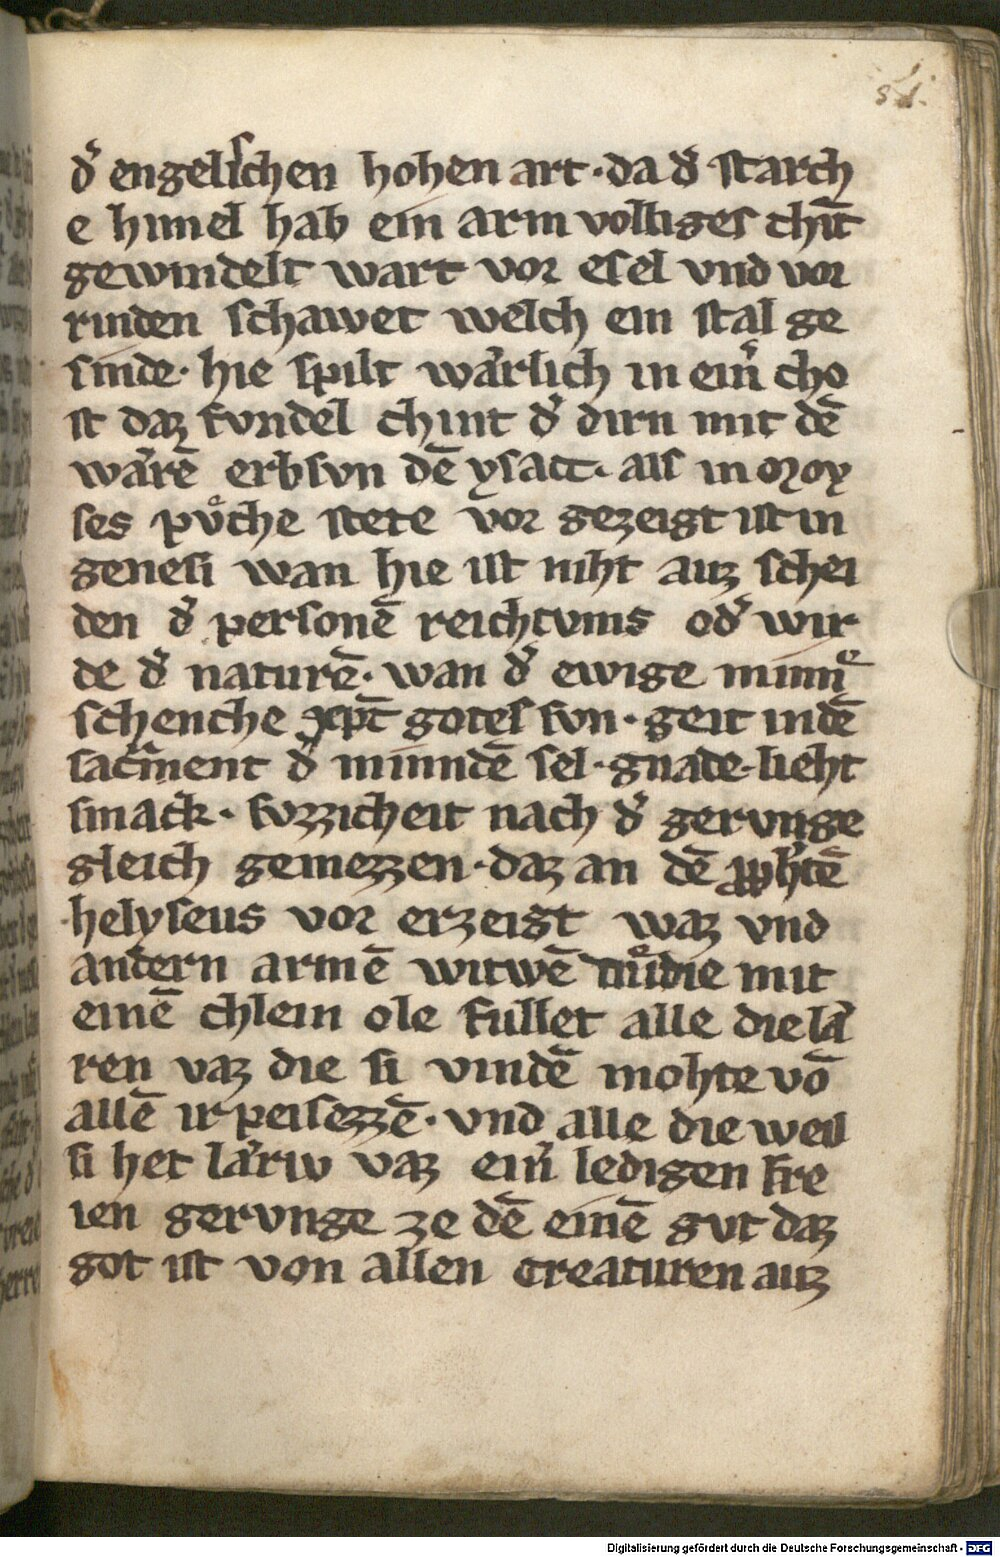 51.
dˀ engelischen hohen art · da dˀ starch
e himel hab ein arm volliges chīt
gewindelt wart vor esel vnd vor
rinden schawet welch ein stal ge
sinde · hie spilt wärlich in einˀ cho
st daz fundel chint dˀ dirn mit dē
wärē erbsvn dē ysact · als in moy
ses pvͦche stete vor gezeigt ist in
genesi wan hie ist niht auz schei
den dˀ personē reichtvms odˀ wir
de dˀ naturē · wan dˀ ewige minnͤ
schenche xp̄t gotes svn · geit in dē
sacͣment dˀ minndē sel · gnade · lieht
smack · svzzicheit nach dˀ gervnge
gleich gemezzen · daz an dē pphˀtē
helyseus vor erzeigt waz vnd
andern armē witwē die mit
einē chlein ole fullet alle die lä
ren vaz die si vindē mohte vō
allē ir peisezzē · vnd alle die weil
si het läriv vaz einˀ ledigen fre
ien gervnge ze dē einē gut daz
got ist von allen creaturen auz
Digitalisierung gefördert durch die Deutsche Forschungsgemeinschaft - DFG